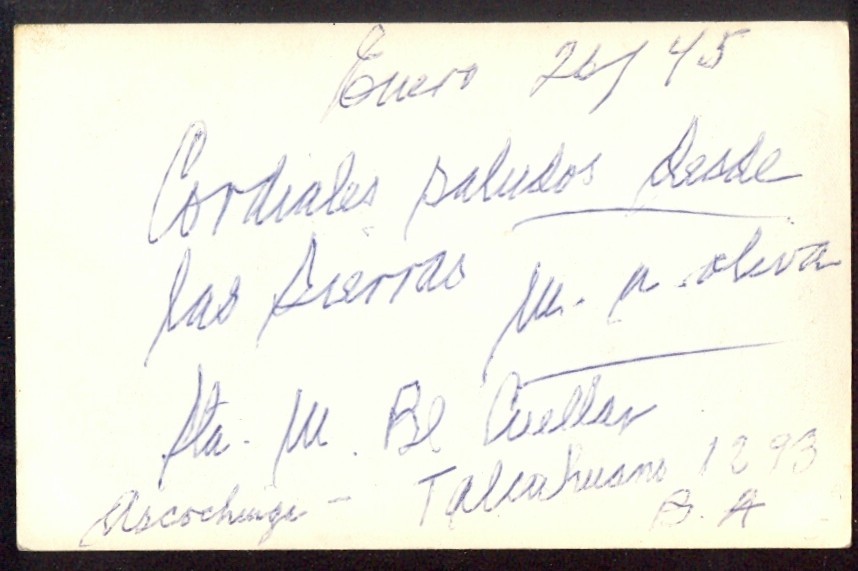 Enero 26/45
Cordiales saludos desde
las Sierras
M. A. Oliva
Sta. M. Bl Cuellar
Ascochinga - Talcahuano 1293
B. A